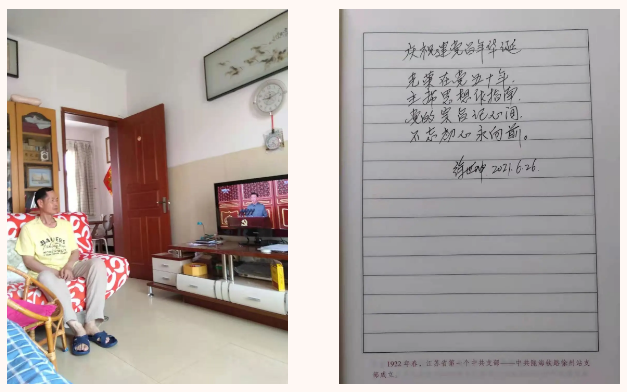 庆祝建党百年华诞
光荣在党五十年.
主席思想作指南.
党的宗旨记心间.
不忘初心永向前。
2021.6.26
1922年春，江苏省第一个中共支部——中共陇海铁路徐州站支
部成立。